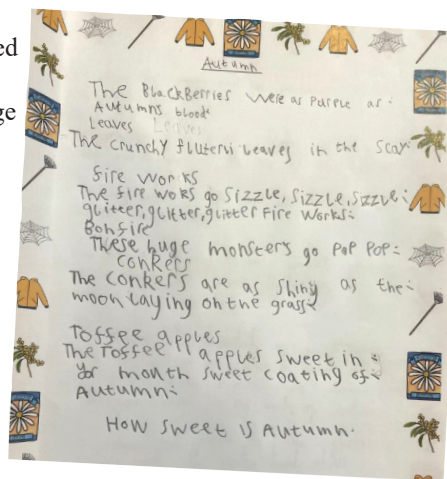 ed
ge
Autumn
The BlackBerries were as Purple as
Autumns blood
Leaves Leaves
The crunchy flutervi Leaves in the Scay
fire works
The fire works go Sizzle, Sizzle, Sizzle
glitter, glitter, glitter Fire works
Bonfire
These huge monsters go Pop Pop
Conkers
The Conkers are as Shiny as the
moon laying on the grass
Toffee apples
The Toffee apples sweet in
yor mouth sweet coating of
Autumn
How sweet is Autumn.